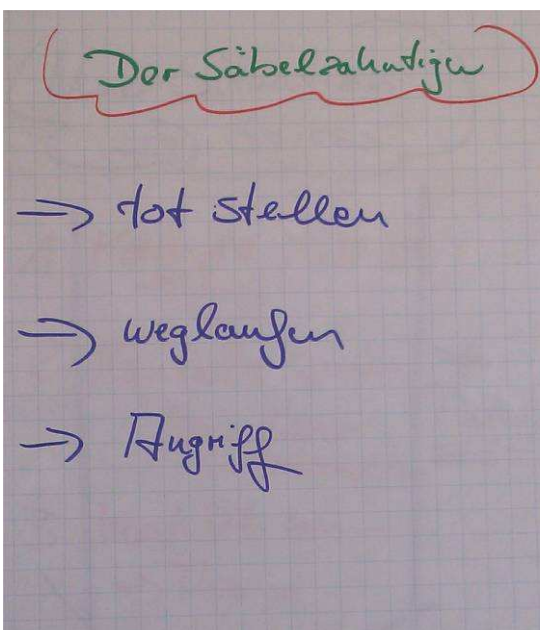 Der Säbelzahntiger
→ tot stellen
→ weglaufen
→ Angriff